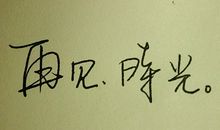 再见.時光。